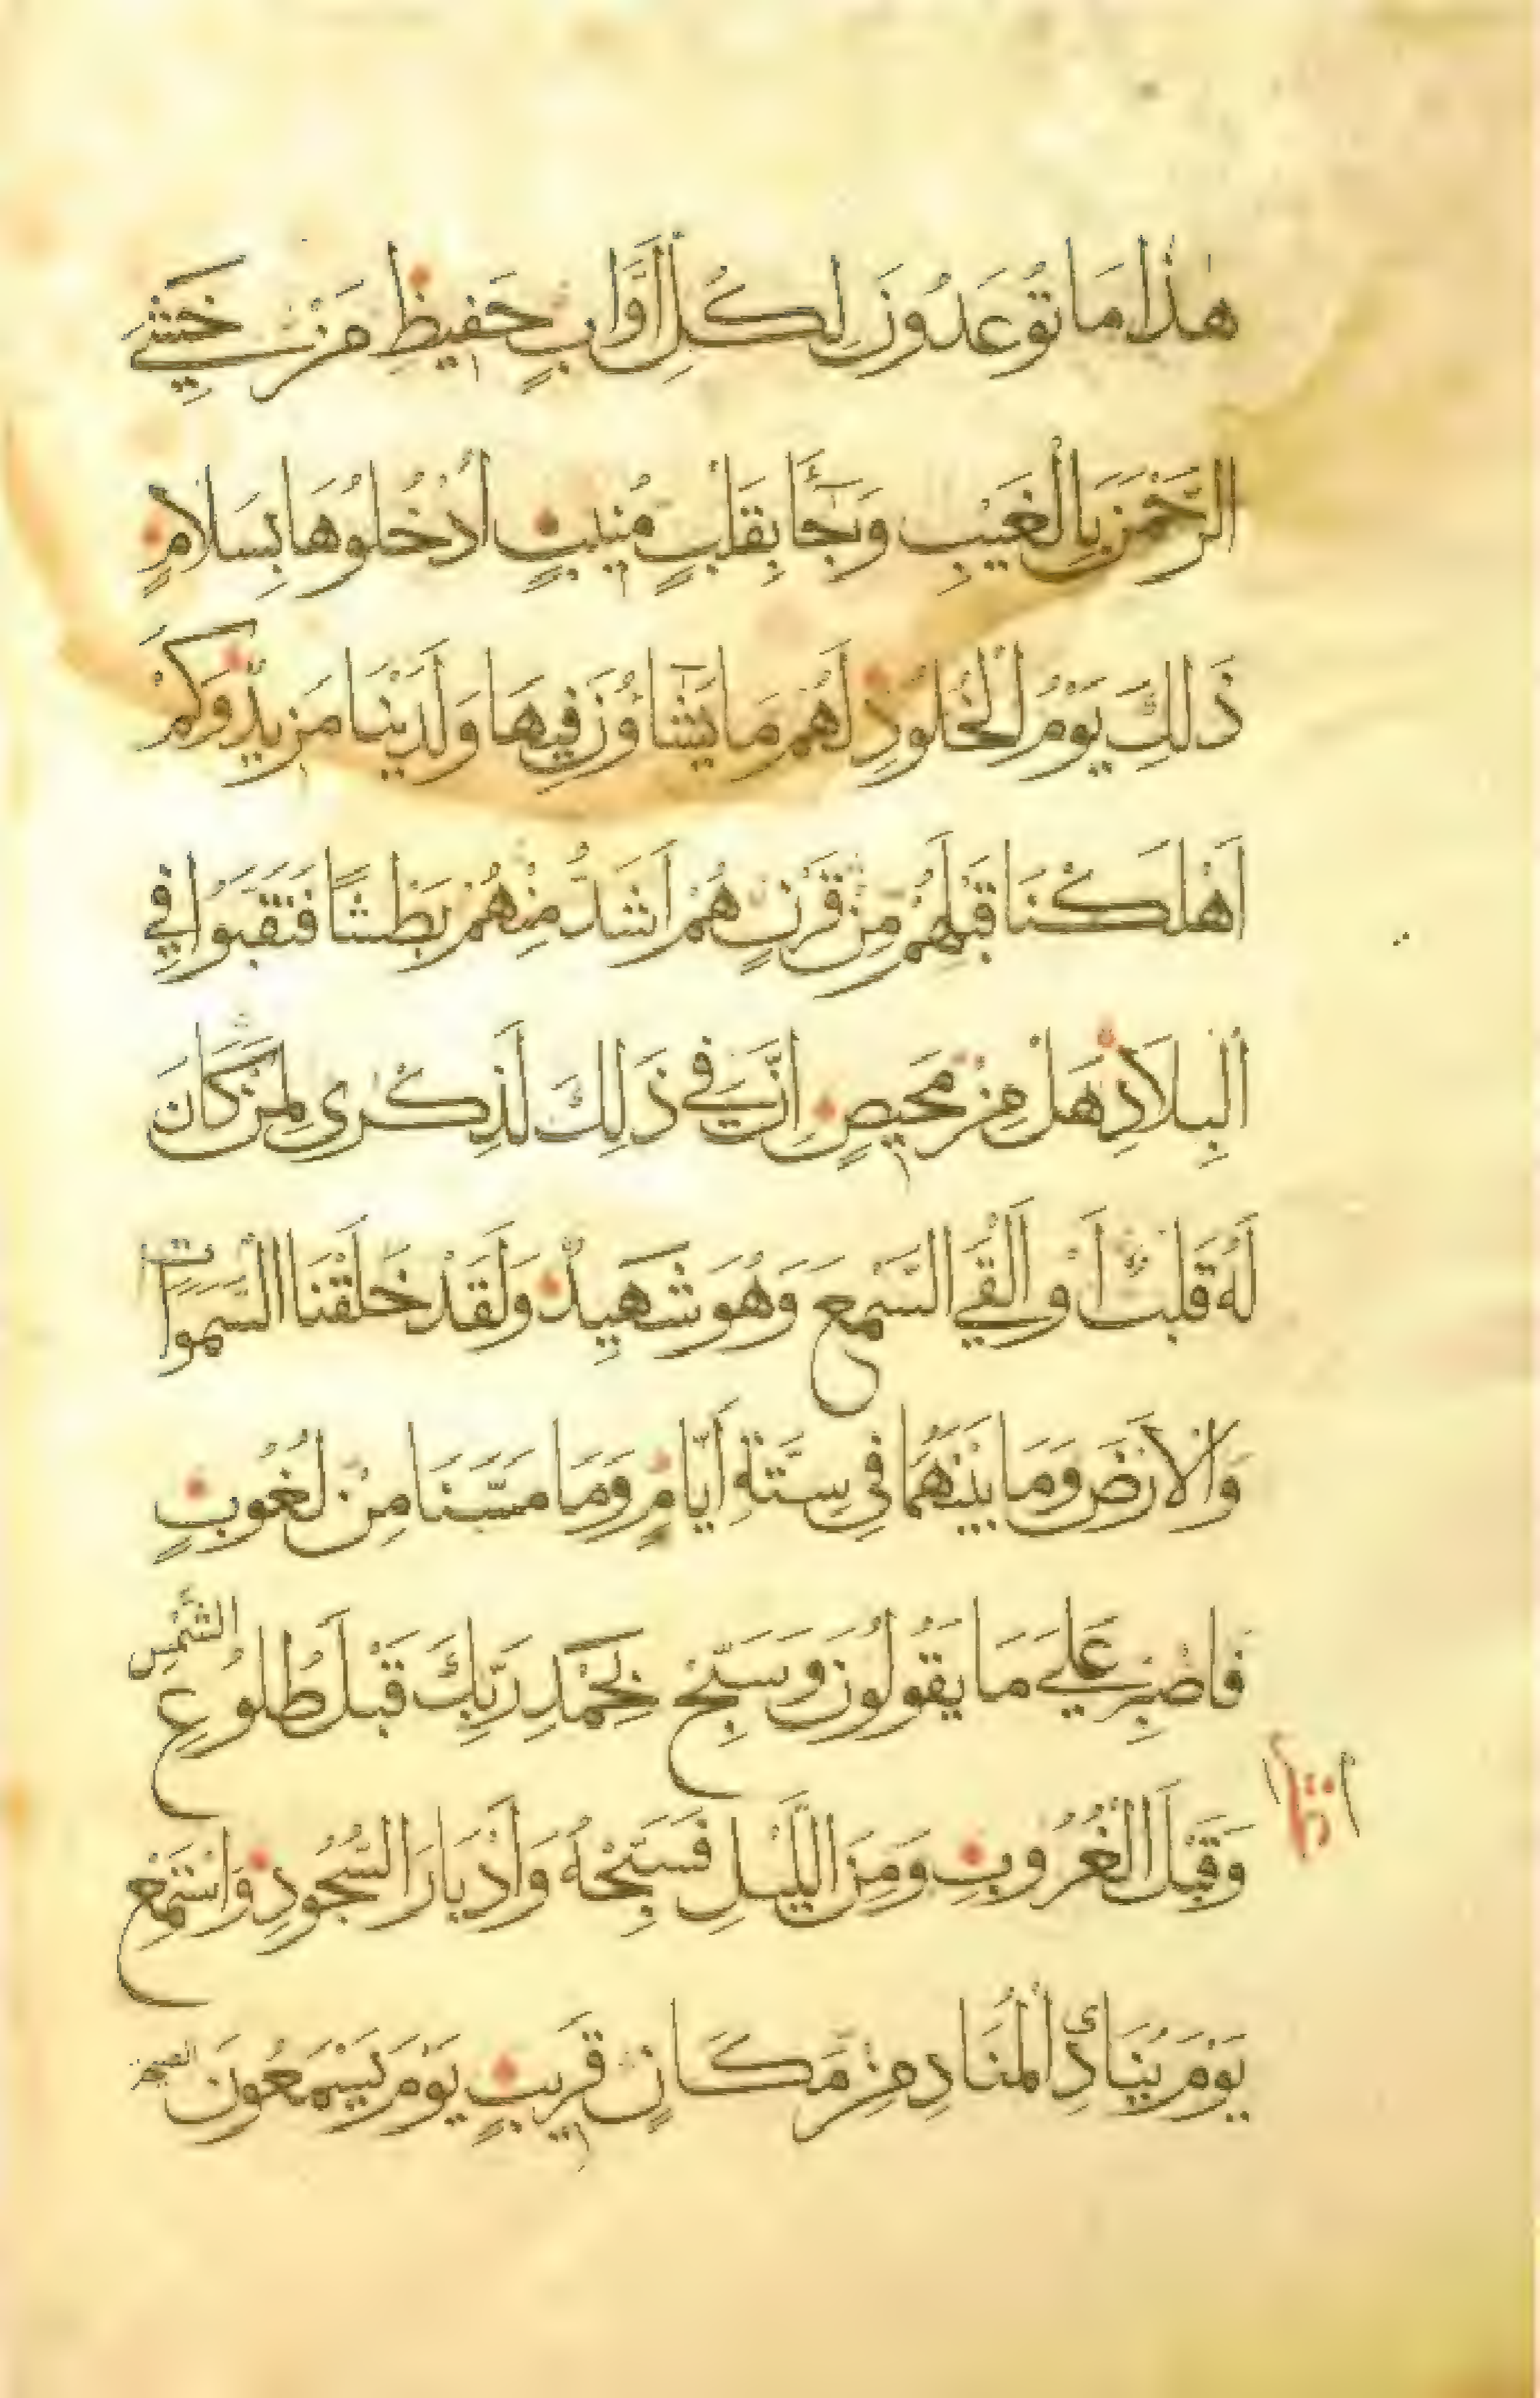 هٰذَا مَا تُوعَدُونَ لِكُلِّ اَوَّابٍ حَفِيظٍ مَنْ خَشِيَ
الرَّحْمٰنَ بِالْغَيْبِ وَجَآءَ بِقَلْبٍ مُنِيبٍ اُدْخُلُوهَا بِسَلَامٍ
ذَلِكَ يَوْمُ الْخُلُودِ لَهُمْ مَا يَشَآؤُنَ فِيهَا وَلَدَيْنَا مَزِيدٌ وَكَمْ
اَهْلَكْنَا قَبْلَهُمْ مِنْ قَرْنٍ هُمْ اَشَدُّ مِنْهُمْ بَطْشًا فَنَقَّبُوا فِي
الْبِلَادِ هَلْ مِنْ مَحِيصٍ اِنَّ فِي ذَلِكَ لَذِكْرَى لِمَنْ كَانَ
لَهُ قَلْبٌ اَوْ اَلْقَي السَّمْعَ وَهُوَ شَهِيدٌ وَلَقَدْ خَلَقْنَا السَّمَوَاتِ
وَالْاَرْضَ وَمَا بَيْنَهُمَا فِي سِتَّةِ اَيَّامٍ وَمَا مَسَّنَا مِنْ لُغُوبٍ
فَاصْبِرْ عَلَي مَا يَقُولُونَ وَسَبِّحْ بِحَمْدِ رَبِّكَ قَبْلَ طُلُوعِ الشَّمْسِ
وَقَبْلَ الْغُرُوبِ وَمِنَ الَّيْلِ فَسَبِّحْهُ وَاَدْبَارَ السُّجُودِ وَاسْتَمِعْ
يَوْمَ يُنَادِي الْمُنَادِ مِنْ مَكَانٍ قَرِيبٍ يَوْمَ يَسْمَعُونَ الصيحة